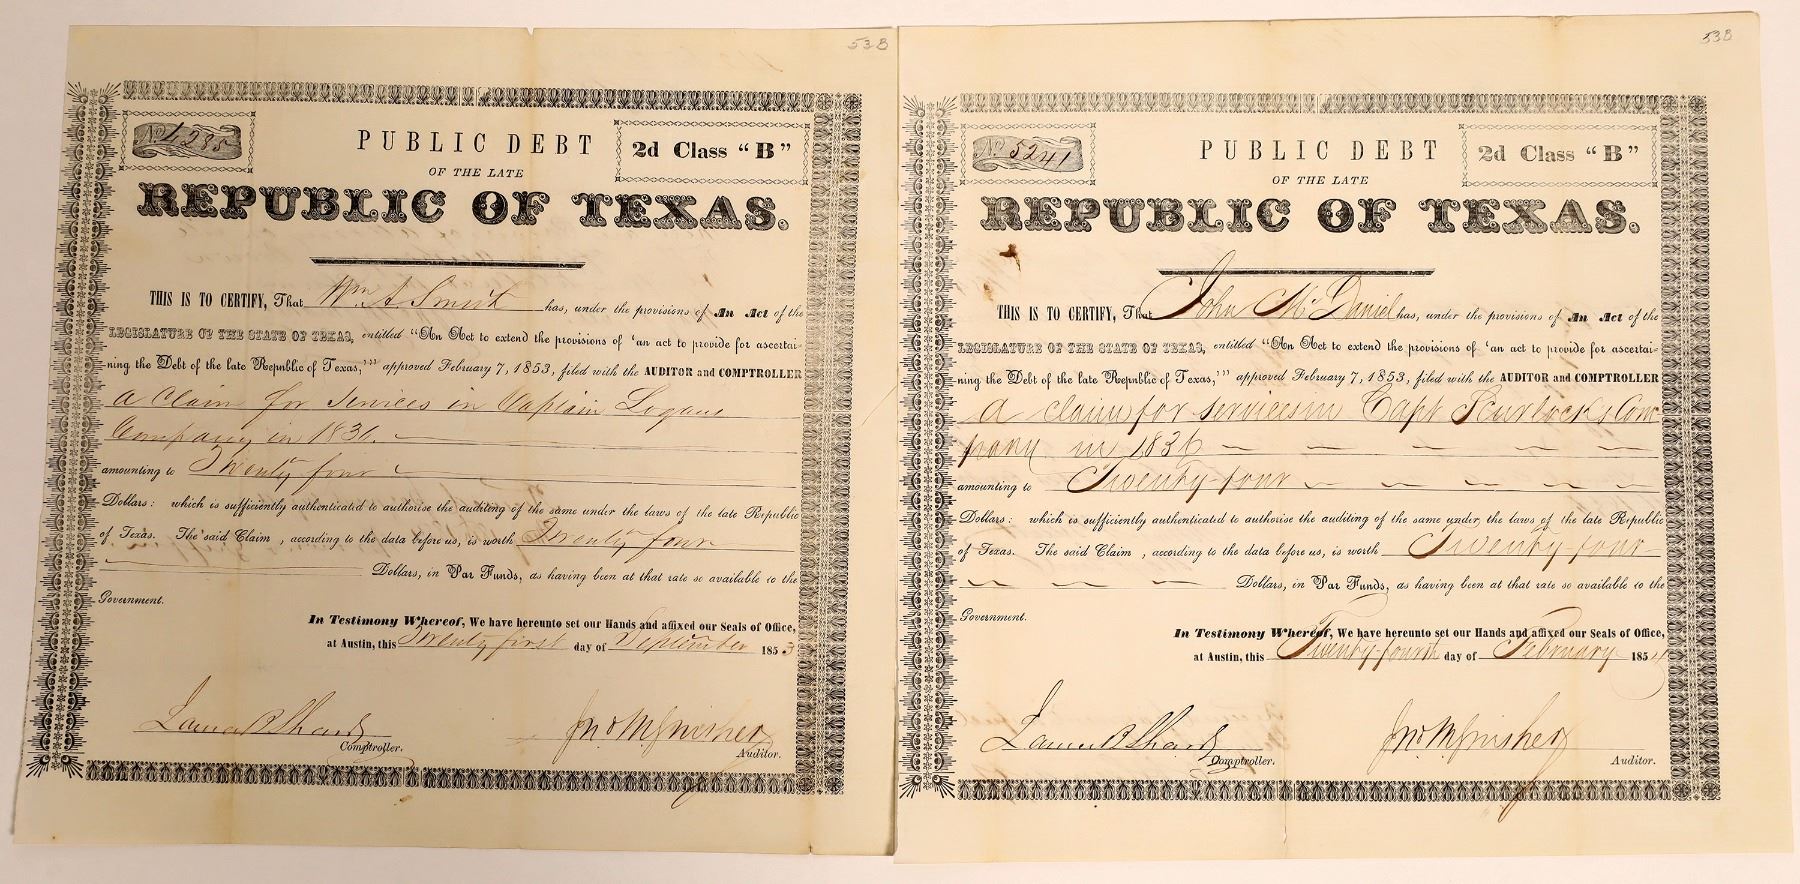 53B
No 1,285
PUBLIC DEBT
2d Class "B"
OF THE LATE
REPUBLIC OF TEXAS.
THIS IS TO CERTIFY, That Wm A Smith has, under the provisions of An Act of the
LEGISLATURE OF THE STATE OF TEXAS, entitled "An Act to extend the provisions of 'an act to provide for ascertai-
ning the Debt of the late Repnblic of Texas,'" approved February 7, 1853, filed with the AUDITOR and COMPTROLLER
a claim for services in Captain Logans
Company in 1836.
amounting to Twenty four
Dollars: which is sufficiently authenticated to authorise the auditing of the same under the laws of the late Republic
of Texas. The said Claim, according to the data before us, is worth Twenty four
Dollars, in Par Funds, as having been at that rate so available to the
Government.
In Testimony Whereof, We have hereunto set our Hands and affixed our Seals of Office,
at Austin, this Twenty first day of September 1853
James B Shaw
Comptroller.
Jno M Swisher
Auditor.
53B
No 5241
PUBLIC DEBT
2d Class "B"
OF THE LATE
REPUBLIC OF TEXAS.
THIS IS TO CERTIFY, That John McDaniel has, under the provisions of An Act of the
LEGISLATURE OF THE STATE OF TEXAS, entitled "An Act to extend the provisions of 'an act to provide for ascertai-
ning the Debt of the late Repnblic of Texas,'" approved February 7, 1853, filed with the AUDITOR and COMPTROLLER
a claim for services in Capt Scurlocks Com
pany in 1836
amounting to Twenty-four
Dollars: which is sufficiently authenticated to authorise the auditing of the same under the laws of the late Republic
of Texas. The said Claim, according to the data before us, is worth Twenty four
Dollars, in Par Funds, as having been at that rate so available to the
Government.
In Testimony Whereof, We have hereunto set our Hands and affixed our Seals of Office,
at Austin, this Twenty-fourth day of February 1854
James B Shaw
Comptroller.
Jno M Swisher
Auditor.